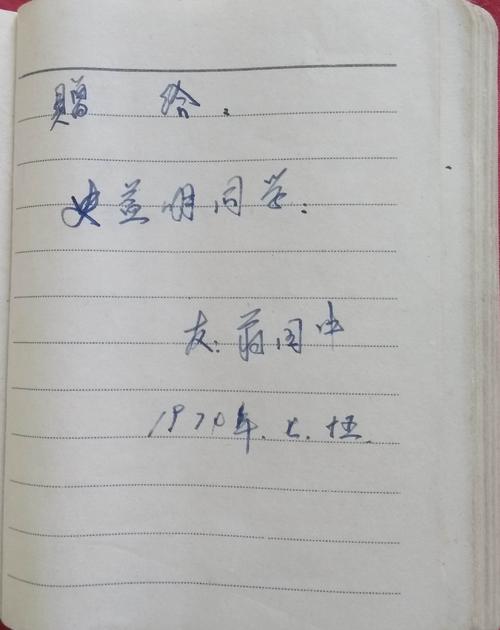 赠 给：
史益明同学：
友：蒋国中
1970年.七.十五.